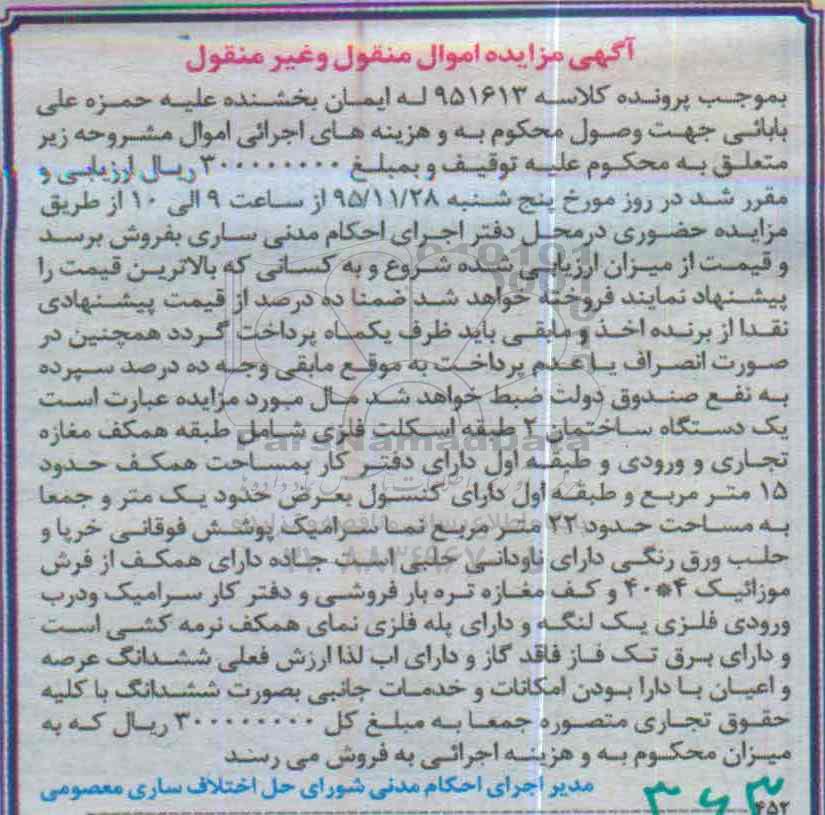 آگهی مزایده اموال منقول وغیر منقول
بموجب پرونده کلاسه ۹۵۱۶۱۳ له ایمان بخشنده علیه حمزه علی
بابائی جهت وصول محکوم به و هزینه های اجرائی اموال مشروحه زیر
متعلق به محکوم علیه توقیف و بمبلغ ۳۰۰۰۰۰۰۰۰۰ ریال ارزیابی و
مقرر شد در روز مورخ پنج شنبه ۹۵/۱۱/۲۸ از ساعت ۹ الی ۱۰ از طریق
مزایده حضوری درمحل دفتر اجرای احکام مدنی ساری بفروش برسد
و قیمت از میزان ارزیابی شده شروع و به کسانی که بالاترین قیمت را
پیشنهاد نمایند فروخته خواهد شد ضمنا ده درصد از قیمت پیشنهادی
نقدا از برنده اخذ و مابقی باید ظرف یکماه پرداخت گردد همچنین در
صورت انصراف یا عدم پرداخت به موقع مابقی وجه ده درصد سپرده
به نفع صندوق دولت ضبط خواهد شد مال مورد مزایده عبارت است
یک دستگاه ساختمان ۲ طبقه اسکلت فلزی شامل طبقه همکف مغازه
تجاری و ورودی و طبقه اول دارای دفتر کار بمساحت همکف حدود
۱۵ متر مربع و طبقه اول دارای کنسول بعرض حدود یک متر و جمعا
به مساحت حدود ۲۲ متر مربع نما سرامیک پوشش فوقانی خرپا و
حلب ورق رنگی دارای ناودانی حلبی است جاده دارای همکف از فرش
موزائیک ۴*۴۰ و کف مغازه تره بار فروشی و دفتر کار سرامیک ودرب
ورودی فلزی یک لنگه و دارای پله فلزی نمای همکف نرمه کشی است
و دارای برق تک فاز فاقد گاز و دارای اب لذا ارزش فعلی ششدانگ عرصه
و اعیان با دارا بودن امکانات و خدمات جانبی بصورت ششدانگ با کلیه
حقوق تجاری متصوره جمعا به مبلغ کل ۳۰۰۰۰۰۰۰۰۰ ریال که به
میزان محکوم به و هزینه اجرائی به فروش می رسند
مدیر اجرای احکام مدنی شورای حل اختلاف ساری معصومی
ParsNamadData